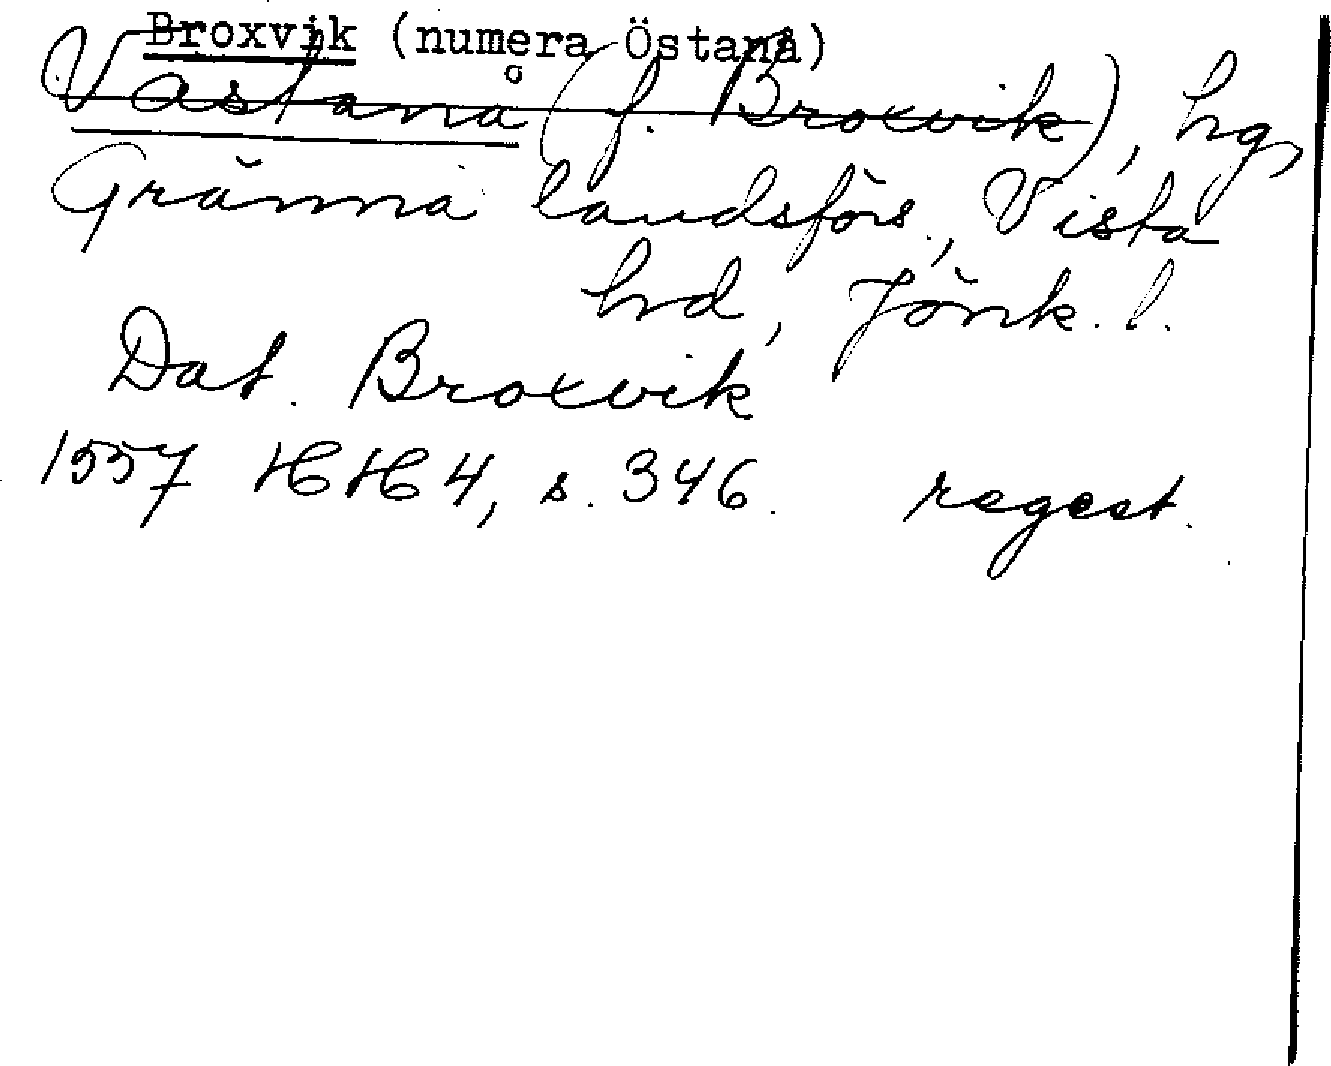 Broxvik (numera Östanå)
Västanå (f. Broxvik), hg,
Gränna landsförs., Vista
hd, Jönk. l.
Dat. Broxvik
1557 HH 4, s. 346. regest.